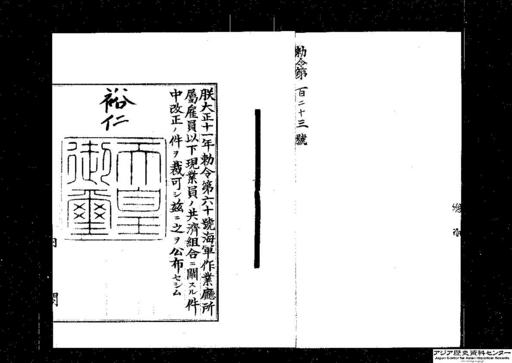 勅令第百二十三號
朕大正十一年勅令第六十號海軍作業廳所
屬雇員以下現業員ノ共濟組合ニ關スル件
中改正ノ件ヲ裁可シ茲ニ之ヲ公布セシム
裕仁
天皇
御璽
内閣
アジア歴史資料センター
Japan Center for Asian Historical Records